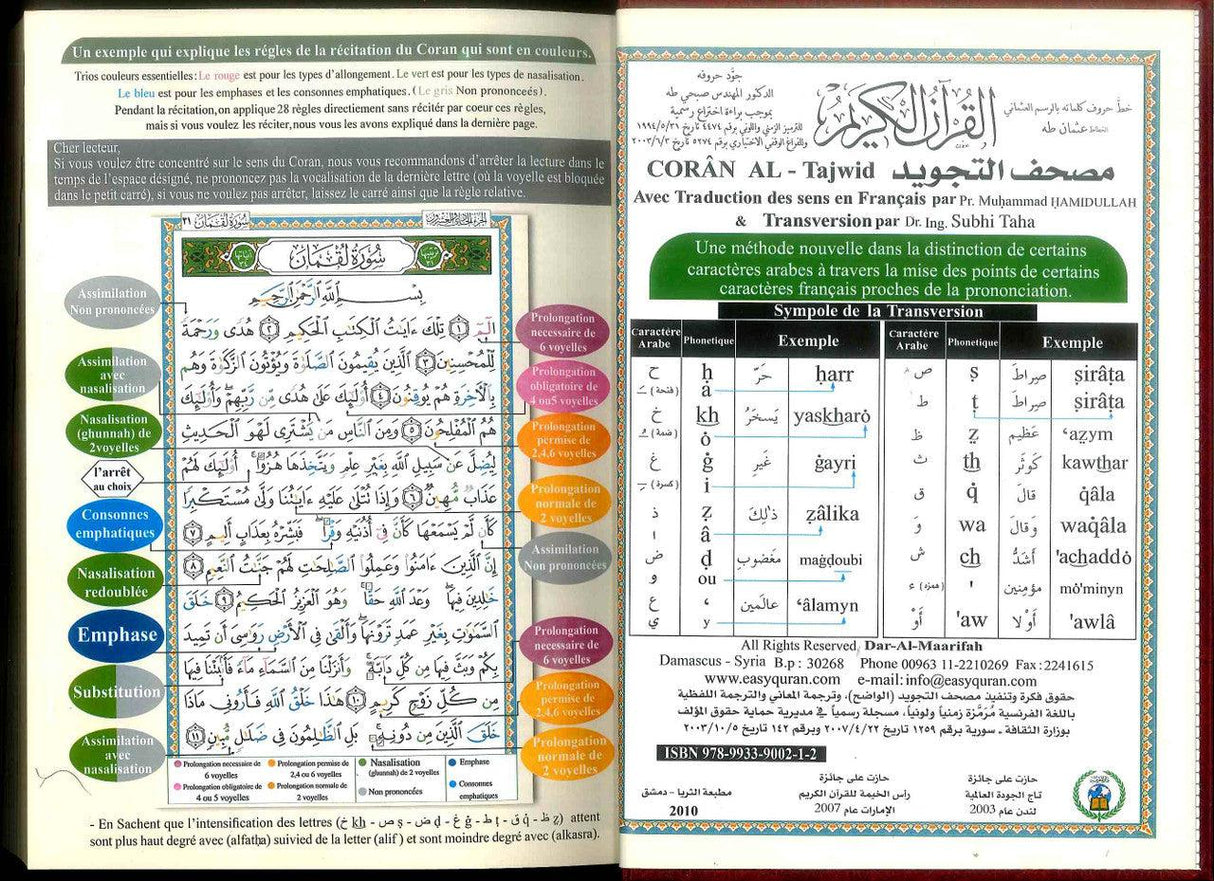 Un exemple qui explique les régles de la récitation du Coran qui sont en couleurs.
Trios couleurs essentielles: Le rouge est pour les types d'allongement. Le vert est pour les types de nasalisation.
Le bleu est pour les emphases et les consonnes emphatiques. (Le gris Non prononceés).
Pendant la récitation,on applique 28 règles directement sans réciter par coeur ces règles,
mais si vous voulez les réciter,nous vous les avons expliqué dans la dernière page.
Cher lecteur,
Si vous voulez être concentré sur le sens du Coran, nous vous recommandons d'arrêter la lecture dans le
temps de l'espace désigné, ne prononcez pas la vocalisation de la dernière lettre (où la voyelle est bloquée
dans le petit carré), si vous ne voulez pas arrêter, laissez le carré ainsi que la règle relative.
سُورَةُ لُقْمَان ٣١
الجزء الحادي والعشرون
سُورَةُ لُقْمَانَ
بِسْمِ ٱللَّهِ ٱلرَّحْمَٰنِ ٱلرَّحِيمِ
الٓمٓ ١ تِلْكَ ءَايَٰتُ ٱلْكِتَٰبِ ٱلْحَكِيمِ ٢ هُدًى وَرَحْمَةً
لِّلْمُحْسِنِينَ ٣ ٱلَّذِينَ يُقِيمُونَ ٱلصَّلَوٰةَ وَيُؤْتُونَ ٱلزَّكَوٰةَ وَهُم
بِٱلْءَاخِرَةِ هُمْ يُوقِنُونَ ٤ أُو۟لَٰٓئِكَ عَلَىٰ هُدًى مِّن رَّبِّهِمْ وَأُو۟لَٰٓئِكَ
هُمُ ٱلْمُفْلِحُونَ ٥ وَمِنَ ٱلنَّاسِ مَن يَشْتَرِى لَهْوَ ٱلْحَدِيثِ
لِيُضِلَّ عَن سَبِيلِ ٱللَّهِ بِغَيْرِ عِلْمٍ وَيَتَّخِذَهَا هُزُوًا أُو۟لَٰٓئِكَ لَهُمْ
عَذَابٌ مُّهِينٌ ٦ وَإِذَا تُتْلَىٰ عَلَيْهِ ءَايَٰتُنَا وَلَّىٰ مُسْتَكْبِرًا
كَأَن لَّمْ يَسْمَعْهَا كَأَنَّ فِىٓ أُذُنَيْهِ وَقْرًا فَبَشِّرْهُ بِعَذَابٍ أَلِيمٍ ٧
إِنَّ ٱلَّذِينَ ءَامَنُوا۟ وَعَمِلُوا۟ ٱلصَّٰلِحَٰتِ لَهُمْ جَنَّٰتُ ٱلنَّعِيمِ ٨
خَٰلِدِينَ فِيهَا وَعْدَ ٱللَّهِ حَقًّا وَهُوَ ٱلْعَزِيزُ ٱلْحَكِيمُ ٩ خَلَقَ
ٱلسَّمَٰوَٰتِ بِغَيْرِ عَمَدٍ تَرَوْنَهَا وَأَلْقَىٰ فِى ٱلْأَرْضِ رَوَٰسِىَ أَن تَمِيدَ
بِكُمْ وَبَثَّ فِيهَا مِن كُلِّ دَآبَّةٍ وَأَنزَلْنَا مِنَ ٱلسَّمَآءِ مَآءً فَأَنۢبَتْنَا فِيهَا
مِن كُلِّ زَوْجٍ كَرِيمٍ ١٠ هَٰذَا خَلْقُ ٱللَّهِ فَأَرُونِى مَاذَا
خَلَقَ ٱلَّذِينَ مِن دُونِهِۦ بَلِ ٱلظَّٰلِمُونَ فِى ضَلَٰلٍ مُّبِينٍ ١١
Assimilation
Non prononcées
Assimilation
avec
nasalisation
Nasalisation
(ghunnah) de
2voyelles
l'arrêt
au choix
Consonnes
emphatiques
Nasalisation
redoublée
Emphase
Substitution
Assimilation
avec
nasalisation
Prolongation
necessaire de
6 voyelles
Prolongation
obligatoire de
4 ou5 voyelles
Prolongation
permise de
2,4,6 voyelles
Prolongation
normale de
2 voyelles
Assimilation
Non prononcées
Prolongation
necessaire de
6 voyelles
Prolongation
permise de
2,4,6 voyelles
Prolongation
normale de
2 voyelles
Prolongation necessaire de
6 voyelles
Prolongation permise de
2,4 ou 6 voyelles
Nasalisation
(ghunnah) de 2 voyelles
Emphase
Prolongation obligatoire de
4 ou 5 voyelles
Prolongation normale de
2 voyelles
Non prononcées
Consonnes
emphatiques
- En Sachent que l'intensification des lettres (خ kh - ص ṣ - ض ḍ - غ ġ - ط ṭ - ق q̇ - ظ ẓ) attent
sont plus haut degré avec (alfatḥa) suivied de la letter (alif ) et sont moindre degré avec (alkasra).
جوَّد حروفه
الدكتور المهندس صبحي طه
بموجب براءة اختراع رسمية
للترميز الزمني واللوني برقم ٤٤٧٤ تاريخ ١٩٩٤/٥/٣١
وللفراغ الوقفي الاختياري برقم ٥٢٧٤ تاريخ ٢٠٠٣/٦/٣
القرآن الكريم
خطَّ حروف كلماته بالرسم العثماني
الخطاط عثمان طه
CORÂN AL - Tajwid مصحف التجويد
Avec Traduction des sens en Français par Pr. Muḥammad ḤAMIDULLAH
& Transversion par Dr. Ing. Subhi Taha
Une méthode nouvelle dans la distinction de certains
caractères arabes à travers la mise des points de certains
caractères français proches de la prononciation.
Sympole de la Transversion
Caractére Arabe Phonetique Exemple Caractére Arabe Phonetique Exemple
ح ḥ حَرّ ḥarr ص ṣ صِراطَ ṣirâṭa
(فتحة) a
خ kh يَسخَرُ yaskharȯ ط ṭ صِراطَ ṣirâṭa
(ضمة) ȯ ظ ẓ عَظيم ‘aẓym
غ ġ غَيرِ ġayri ث th كَوثَر kawthar
(كسرة) i ق q̇ قالَ q̇âla
ذ ẓ ذلِكَ ẓâlika وَ wa وقالَ waq̇âla
ا â
ض ḍ مَغضوب maġḍoubi ش ch أشَدُّ 'achaddȯ
و ou (همزة) ء ' مؤمِنين mȯ'minyn
ع ‘ عالَمين ‘âlamyn أَوْ 'aw أَوْلا 'awlâ
ي y
All Rights Reserved, Dar-Al-Maarifah
Damascus - Syria B.p : 30268 Phone 00963 11-2210269 Fax :2241615
www.easyquran.com e-mail: info@easyquran.com
حقوق فكرة وتنفيذ مصحف التجويد (الواضح)، وترجمة المعاني والترجمة اللفظية
باللغة الفرنسية مُرَمَّزة زمنياً ولونياً، مسجلة رسمياً في مديرية حماية حقوق المؤلف
بوزارة الثقافة - سورية برقم ١٢٥٩ تاريخ ٢٠٠٧/٤/٢٢ وبرقم ١٤٢ تاريخ ٢٠٠٣/١٠/٥
ISBN 978-9933-9002-1-2
مطبعة الثريا - دمشق
2010
حازت على جائزة
رأس الخيمة للقرآن الكريم
الإمارات عام 2007
حازت على جائزة
تاج الجودة العالمية
لندن عام 2003